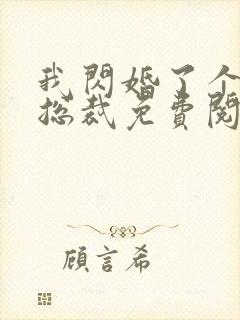 我閃婚了个
总裁免費閱
顧言希